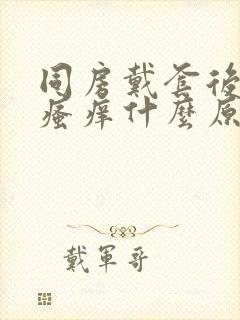 同房戴套後
瘙痒什麼原
戴軍哥